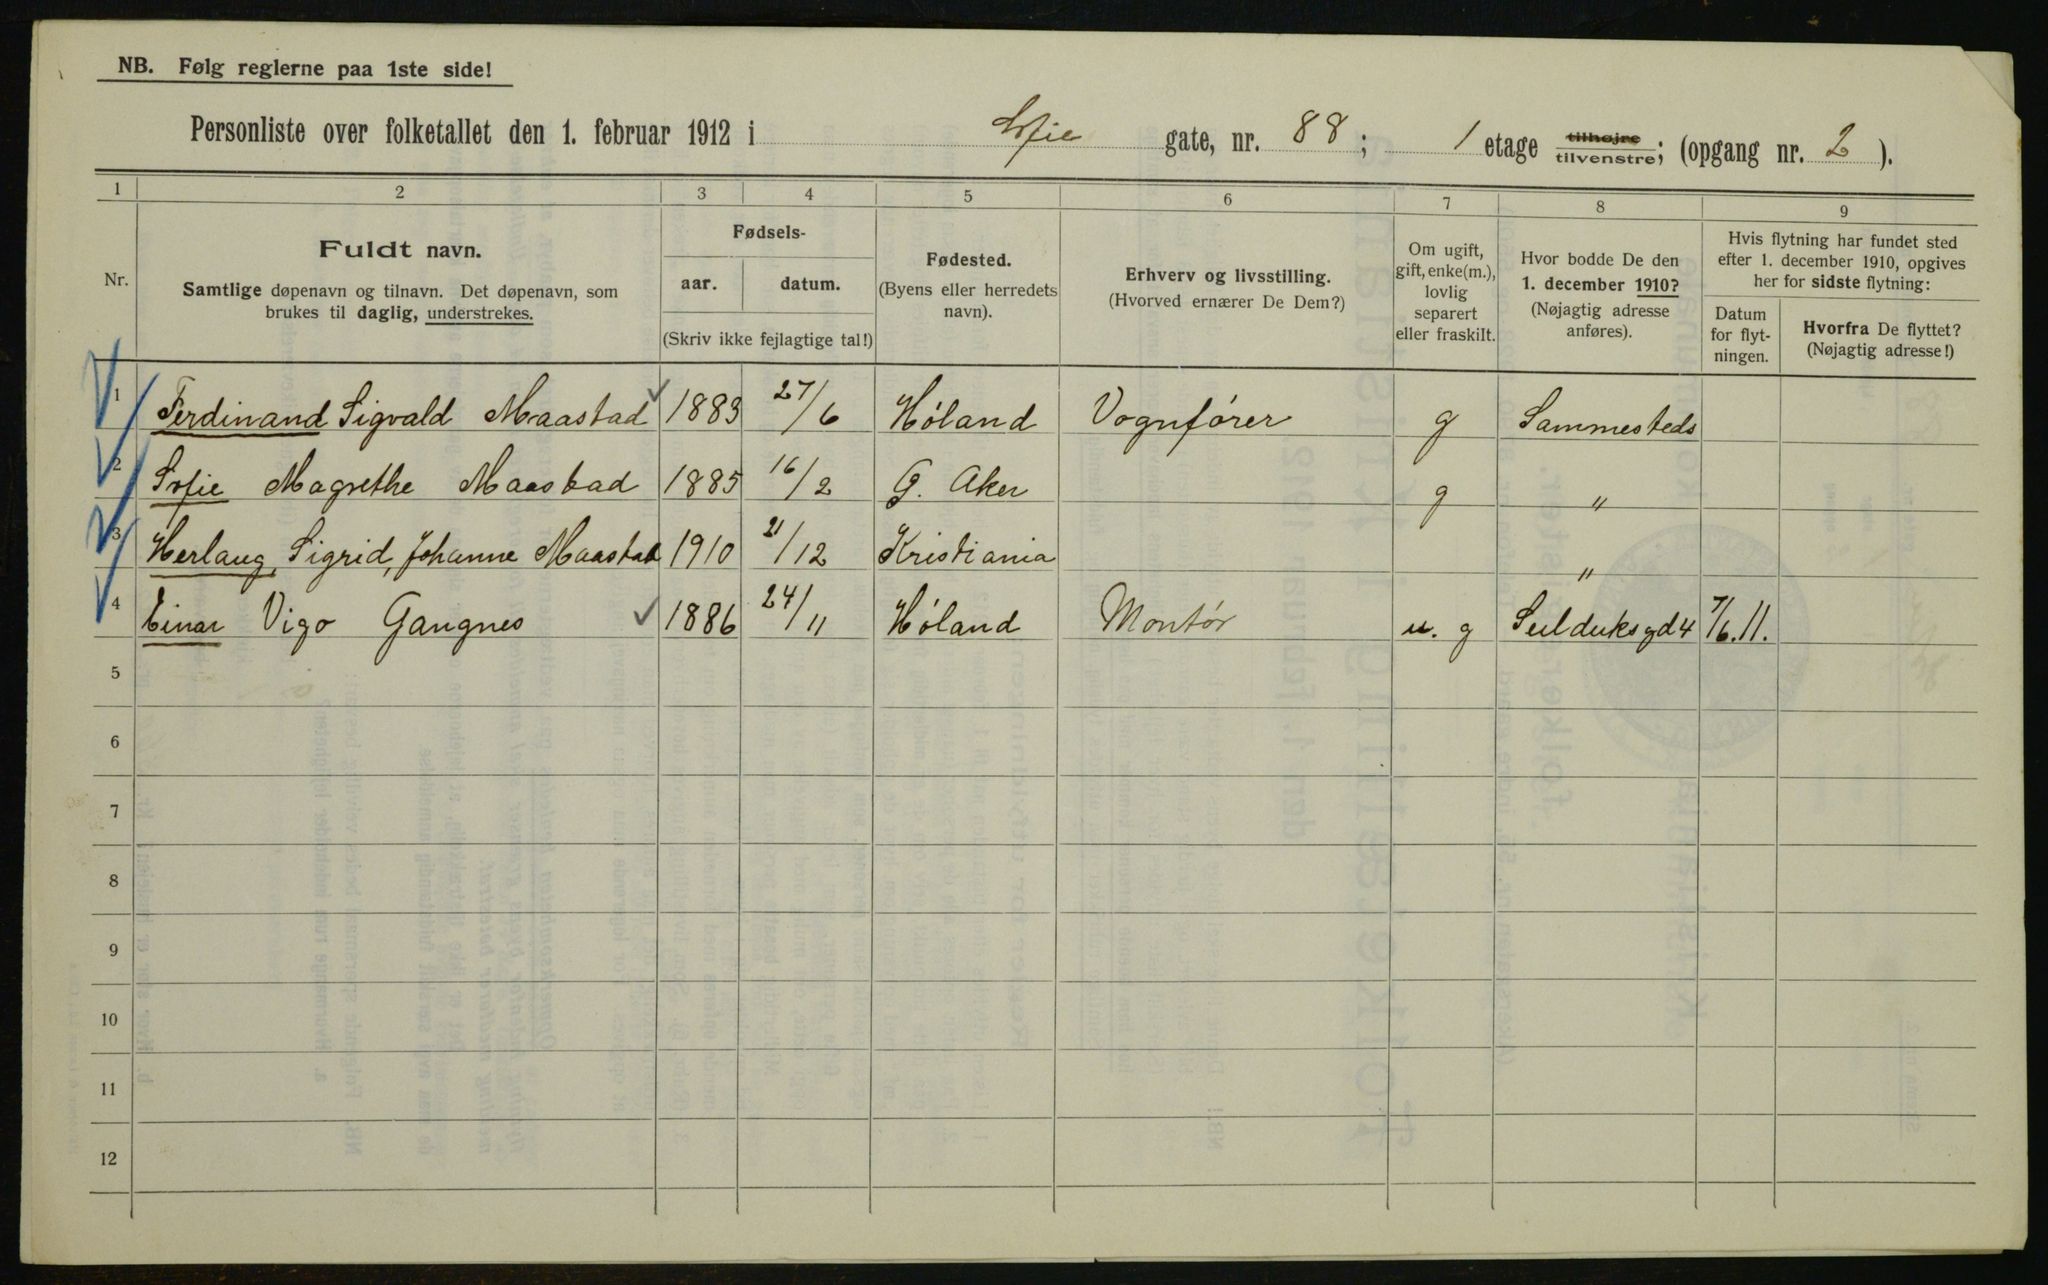 NB. Følg reglerne paa 1ste side!
Personliste over folketallet den 1. februar 1912 i Sofie gate, nr. 88; 1 etage tilhøjre tilvenstre; (opgang nr. 2).
1 2 3 4 5 6 7 8 9
Nr.
Fuldt navn.
Samtlige døpenavn og tilnavn. Det døpenavn, som
brukes til daglig, understrekes.
Fødsels-
aar. datum.
(Skriv ikke fejlagtige tal!)
Fødested.
(Byens eller herredets
navn).
Erhverv og livsstilling.
(Hvorved ernærer De Dem?)
Om ugift,
gift, enke(m.),
lovlig
separert
eller fraskilt.
Hvor bodde De den
1. december 1910?
(Nøjagtig adresse
anføres).
Hvis flytning har fundet sted
efter 1. december 1910, opgives
her for sidste flytning:
Datum
for flyt-
ningen.
Hvorfra De flyttet?
(Nøjagtig adresse!)
1 Ferdinand Sigvald Maastad 1883 27/6 Høland Vognfører g Sammesteds
2 Sofie Magrethe Maastad 1885 16/2 G. Aker g "
3 Herlaug, Sigrid, Johanne Maastad 1910 21/12 Kristiania "
4 Einar Vigo Gangnes 1886 24/11 Høland Montør u. g 7/6.11.
5
6
7
8
9
10
11
12